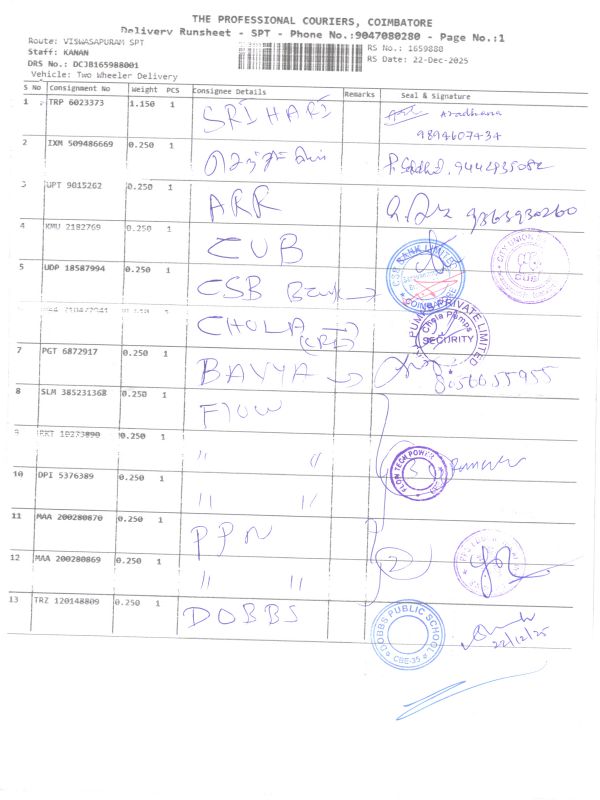 THE PROFESSIONAL COURIERS, COIMBATORE
Delivery Runsheet - SPT - Phone No.:9047080280 - Page No.:1
Route: VISWASAPURAM SPT
RS No.: 1659880
Staff: KANAN
RS Date: 22-Dec-2025
DRS No.: DCJB165988001
Vehicle: Two Wheeler Delivery
S No Consignment No Weight PCS Consignee Details Remarks Seal & Signature
1 TRP 6023373 1.150 1 SRI HARI Aradhana
9894607434
2 IXM 509486669 0.250 1
3 UPT 9015262 0.250 1 ARR
4 KMU 2182769 0.250 1 CUB
5 UDP 18587994 0.250 1 CSB Bank CSB BANK LIMITED
CHOLA
Chola Pumps
PRIVATE LIMITED
SECURITY
7 PGT 6872917 0.250 1 BAVYA
8 SLM 385231368 0.250 1 Flow
9 0.250 1 " "
FLOW TECH POWER
10 DPI 5376389 0.250 1 " "
11 MAA 200280870 0.250 1 PPN
12 MAA 200280869 0.250 1 " "
13 TRZ 120148809 0.250 1 DOBBS
DOBBS PUBLIC SCHOOL
CBE-35
22/12/25